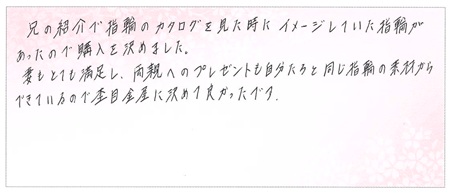 兄の紹介で指輪のカタログを見た時にイメージしていた指輪が
あったので購入を決めました。
妻もとても満足し、両親へのプレゼントも自分たちと同じ指輪の素材から
できているので杢目金屋に決めて良かったです.